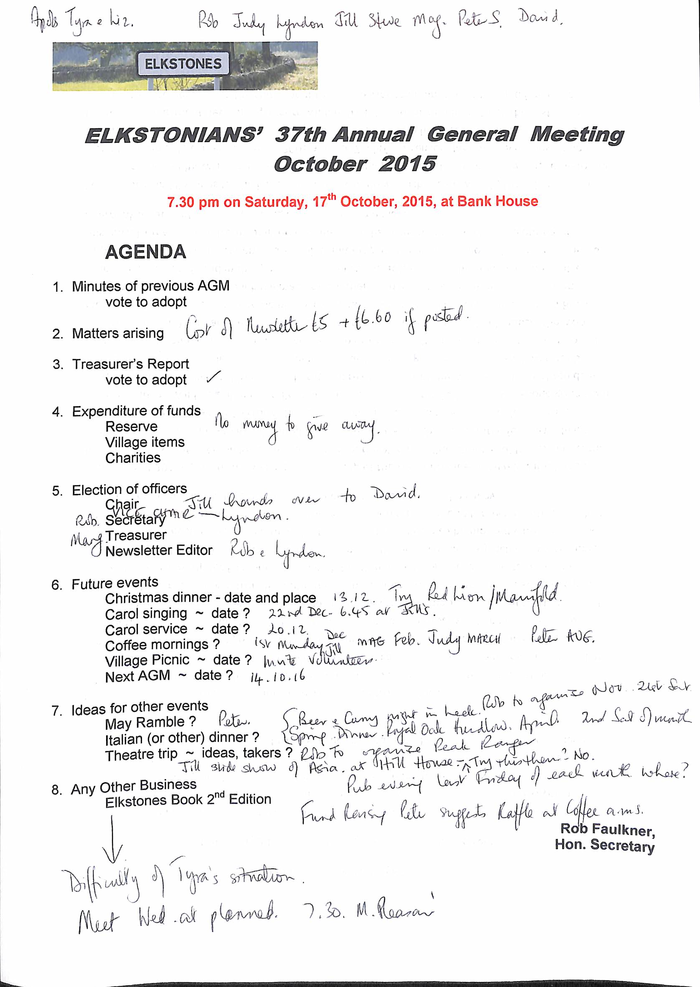 Apols Tyra e Liz. Rob Judy Lyndon Jill Steve Mag. Peter S. David.
ELKSTONES
ELKSTONIANS' 37th Annual General Meeting
October 2015
7.30 pm on Saturday, 17th October, 2015, at Bank House
AGENDA
1. Minutes of previous AGM
vote to adopt
2. Matters arising Cost of Newsletter £5 + £6.60 if posted.
3. Treasurer's Report
vote to adopt ✓
4. Expenditure of funds
Reserve No money to give away.
Village items
Charities
5. Election of officers
Chair Jill hands over to David.
Vice
Rob. Secretary Lyndon.
Mag Treasurer
Newsletter Editor Rob e Lyndon.
6. Future events
Christmas dinner - date and place 13.12. Try Red Lion/Manifold.
Carol singing ~ date ? 22nd Dec- 6.45 at Jill's.
Carol service ~ date ? 20.12.
Coffee mornings ? 1st Monday Dec Jill MAG Feb. Judy MARCH Peter AUG.
Village Picnic ~ date ? Invite Volunteers.
Next AGM ~ date ? 14.10.16
7. Ideas for other events Rob to organise Nov. 21st Sat
May Ramble ? Peter. Beer e Curry night in Leek.
Italian (or other) dinner ? Spring Dinner. Royal Oak April. 2nd Sat of month
Theatre trip ~ ideas, takers ? Rob To organise Peak Ranger
Jill slide show of Asia. at Hill House - Try this then? No.
8. Any Other Business Pub evening last Friday of each month where?
Elkstones Book 2nd Edition
Fund Raising Pete suggests Raffle at Coffee a.ms.
Rob Faulkner,
Hon. Secretary
Difficulty of Tyra's situation.
Meet Wed. at planned. 7.30.